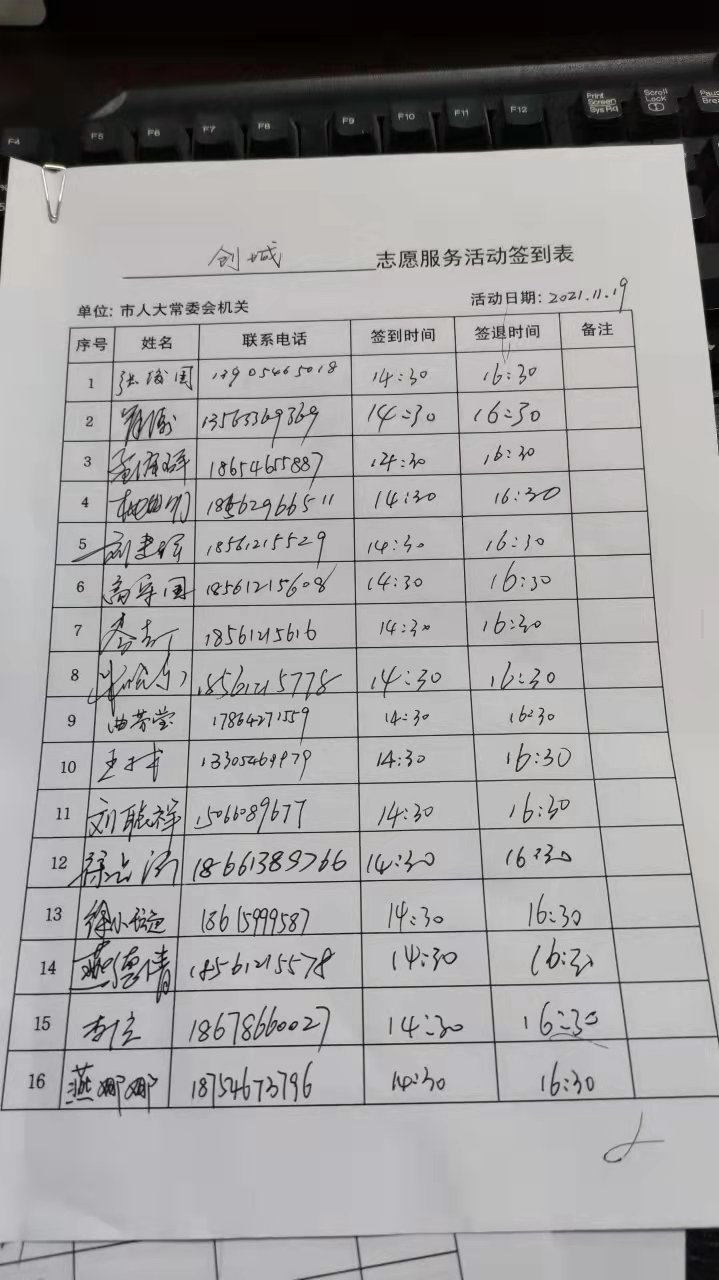 F4 F5 F6 F7 F8 F9 F10 F11 F12 Print Screen Sys Rq Scroll Lock
创城 志愿服务活动签到表
单位: 市人大常委会机关 活动日期: 2021.11.19
序号 姓名 联系电话 签到时间 签退时间 备注
1 13905465018 14:30 16:30
2 13563369369 14:30 16:30
3 18654655887 14:30 16:30
4 14:30 16:30
5 18561215529 14:30 16:30
6 高军国 18561215608 14:30 16:30
7 18561215616 14:30 16:30
8 18561215778 14:30 16:30
9 曲芳莹 17864271559 14:30 16:30
10 14:30 16:30
11 刘聪祥 15066089677 14:30 16:30
12 18661389766 14:30 16:30
13 18615999587 14:30 16:30
14 燕德倩 18561215578 14:30 16:30
15 18678660027 14:30 16:30
16 燕娜娜 18754673796 14:30 16:30